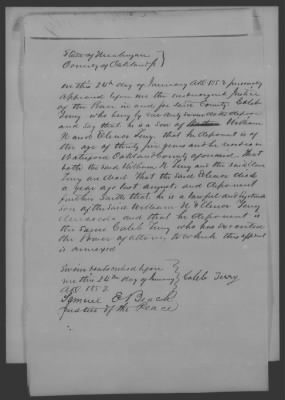 State of Michigan }
County of Oakland ss }
On this 24th day of January AD 1852 personally
appeared before me the undersigned Justice
of the Peace in and for said County Caleb
Terry who being by me duly sworn doth depose
and say that he is a son of William
N and Elenor Terry that he deponent is of
the age of thirty five years and he resides in
Waterford Oakland County aforesaid. That
both the said William N Terry and the said Elenor
Terry are dead That the said Elenor died
a year ago last august and deponent
further saith that he is a lawful and legitimate
son of the said William N & Elenor Terry
deceased and that he deponent is
the same Caleb Terry who has executed
the Power of Attorney to which this affidavit
is annexed
Sworn and subscribed before }
me this 24th day of January } Caleb Terry
AD 1852 }
Samuel E Beach
Justice of the Peace